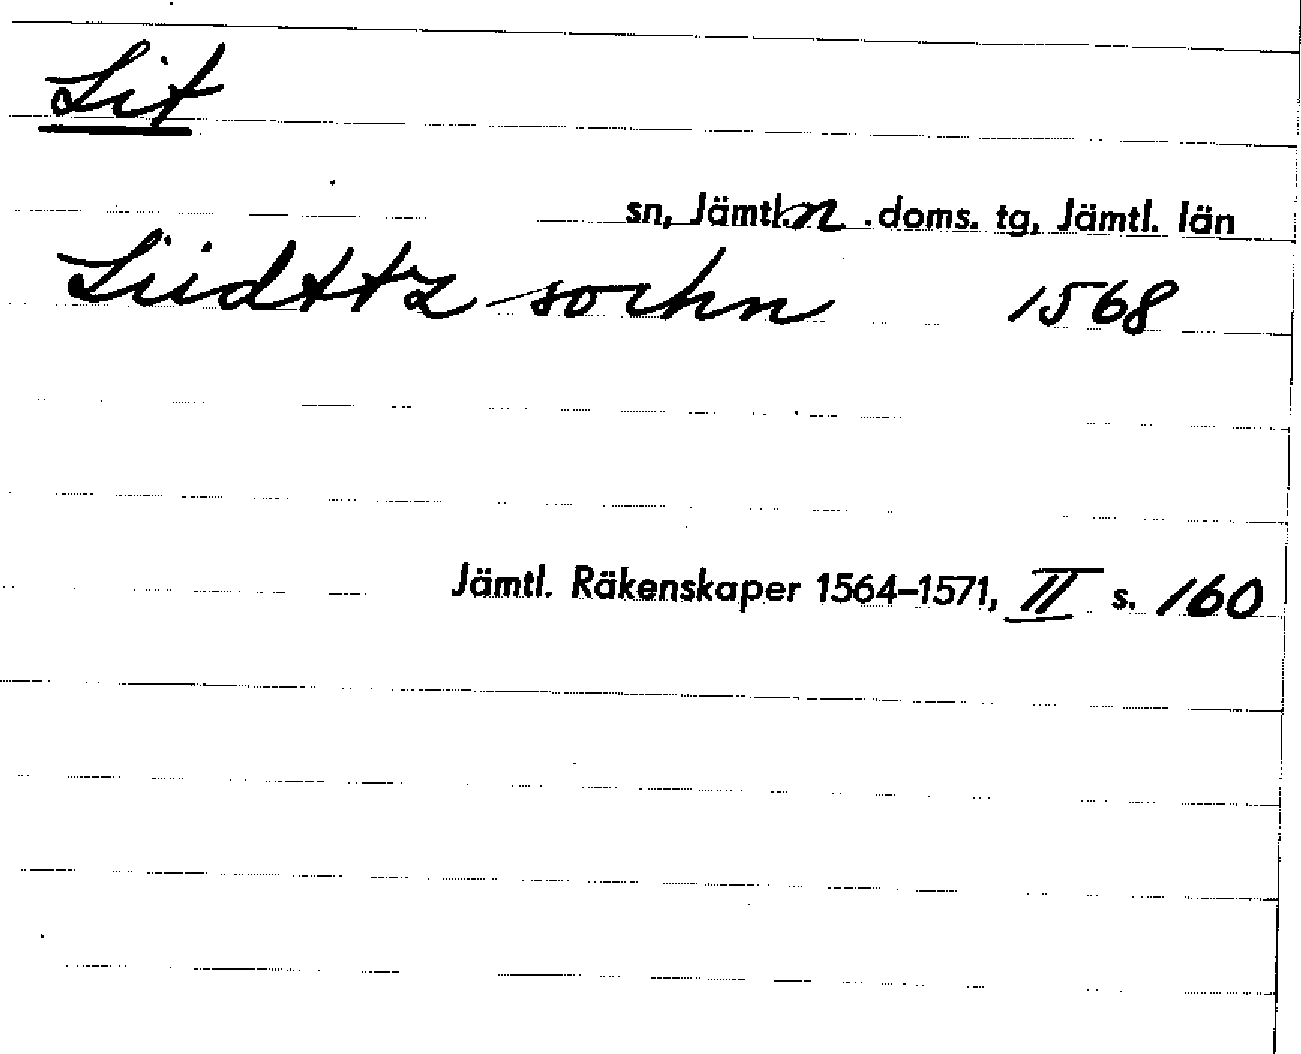 Lit
sn, Jämtl. n. doms. tg, Jämtl. län
Liidttz sochn 1568
Jämtl. Räkenskaper 1564–1571, II s. 160